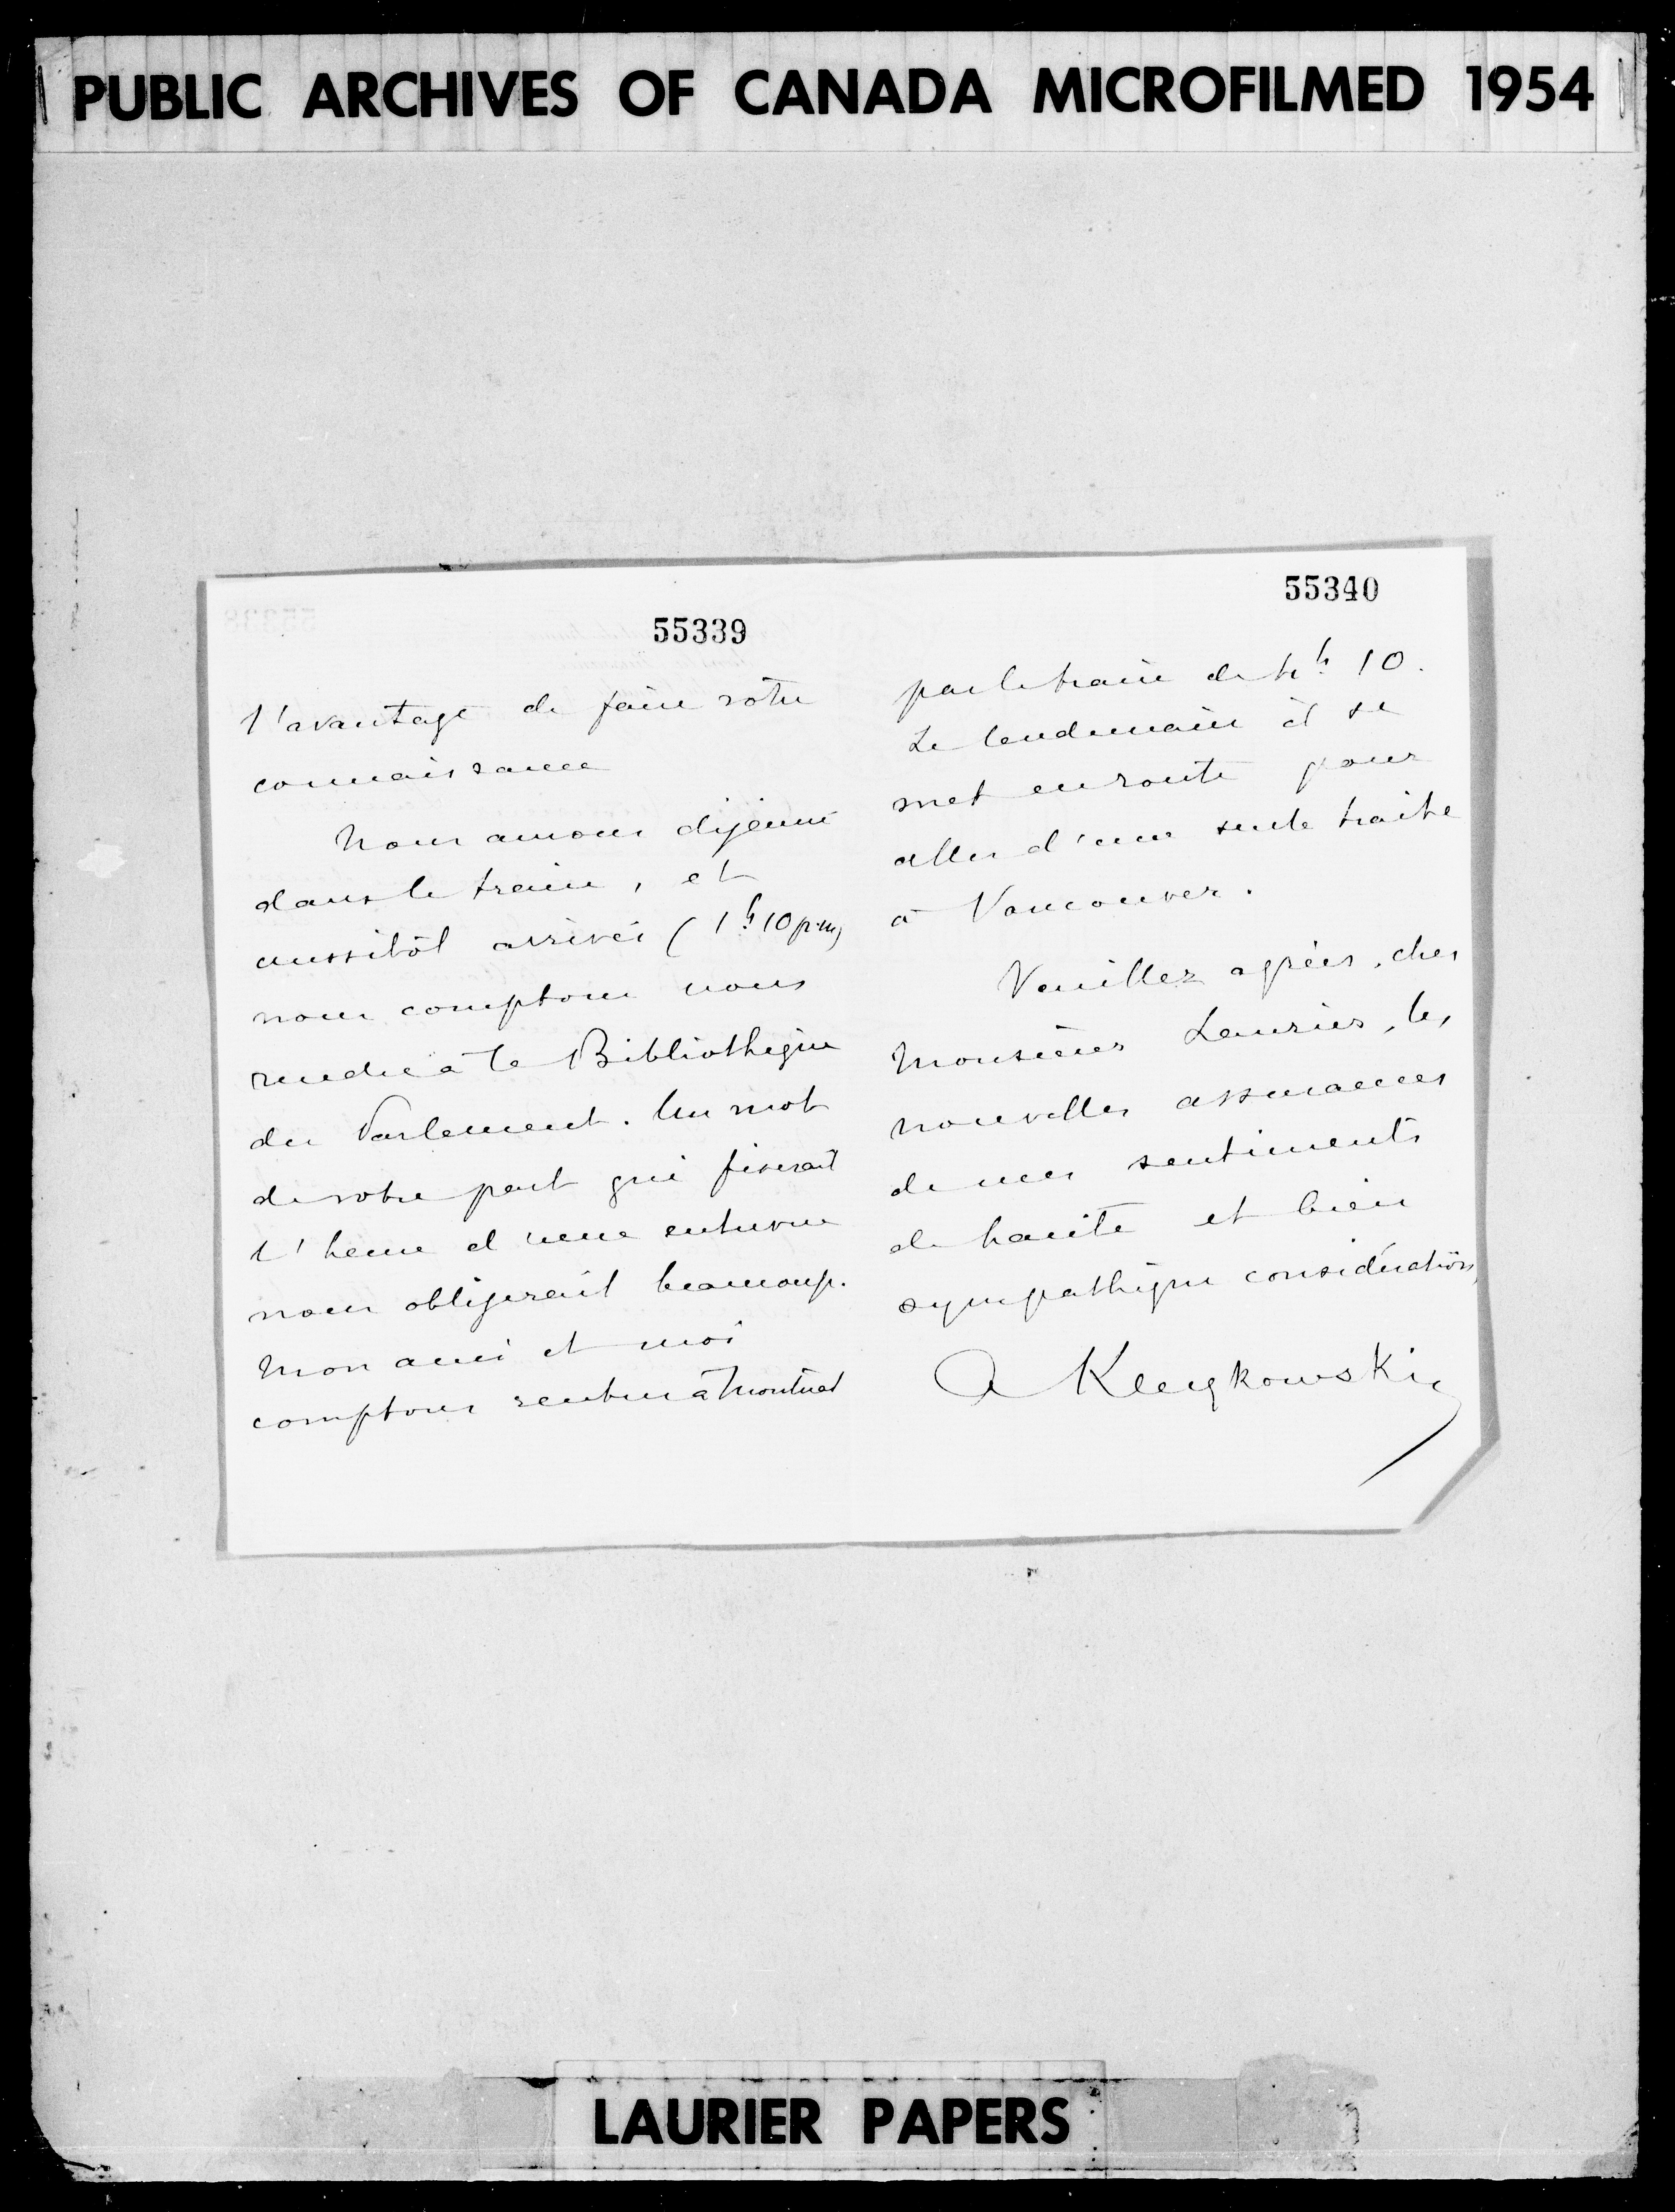 PUBLIC ARCHIVES OF CANADA MICROFILMED 1954
55339
l'avantage de faire votre
connaissance
Nous aurons déjeuné
dans le train, et
aussitôt arrivés (1h10 p.m)
nous comptons nous
rendre à la Bibliothèque
du Parlement. Un mot
de votre part qui fixerait
l'heure d'une entrevue
nous obligerait beaucoup.
Mon ami et moi
comptons rentrer à Montréal
55340
par le train de 4h 10.
Le lendemain il se
met en route pour
aller d'une seule traite
à Vancouver.
Veuillez agréer, cher
Monsieur Laurier, les
nouvelles assurances
de mes sentiments
de haute et bien
sympathique considération,
A Kleczkowski
LAURIER PAPERS